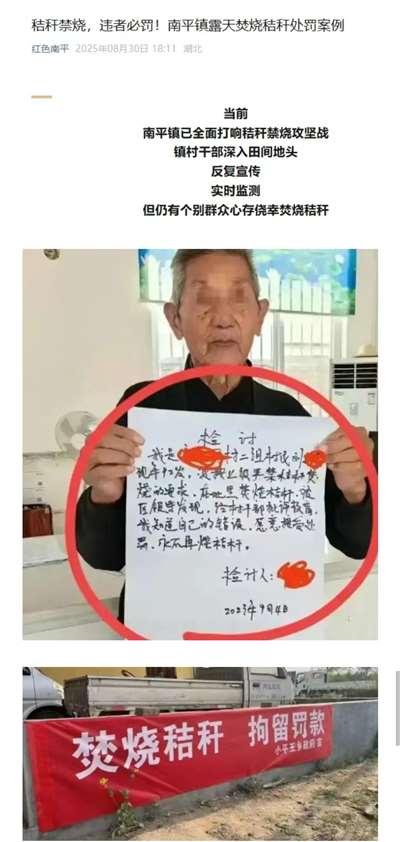 秸秆禁烧，违者必罚！南平镇露天焚烧秸秆处罚案例
红色南平 2025年08月30日 18:11 湖北
当前
南平镇已全面打响秸秆禁烧攻坚战
镇村干部深入田间地头
反复宣传
实时监测
但仍有个别群众心存侥幸焚烧秸秆
检讨
我是 村二组村民刘
现年92岁，没
烧的要求，在地里焚烧秸秆，被
发现，给村干部批评教育，
我知道自己的错误，愿意接受处
罚，永不再烧秸秆。
检讨人：
2023年9月4日
焚烧秸秆 拘留罚款
小王乡政府宣